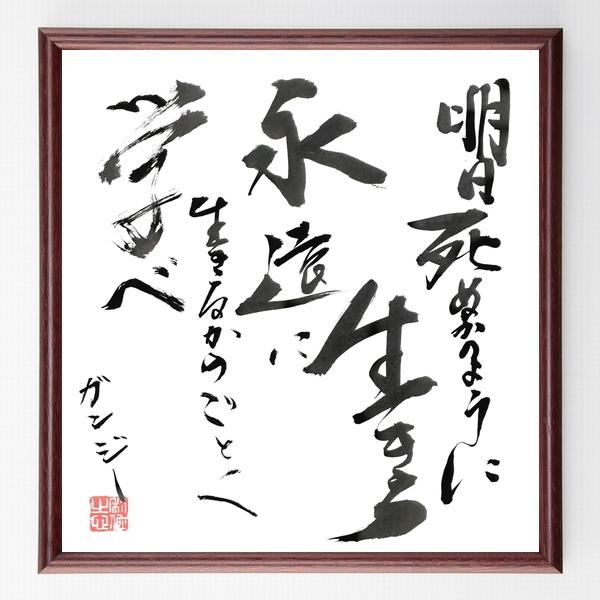 明日死ぬかのように
生きろ
永遠に
生きるかのごとく
学べ
ガンジー